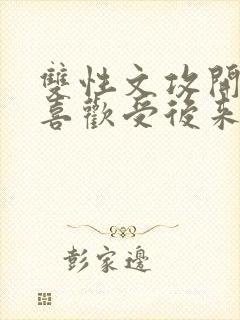 雙性文攻開
喜歡受後來
彭家邊